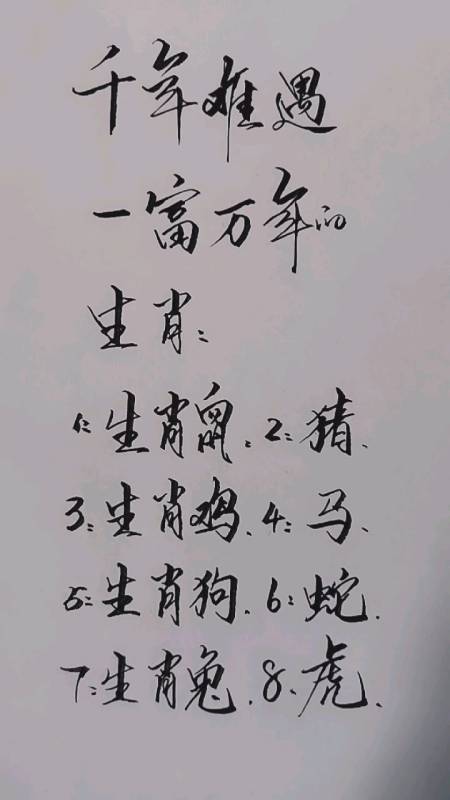 千年难遇
一富万年的
生肖:
1:生肖鼠、2:猪、
3:生肖鸡、4:马、
5:生肖狗、6:蛇、
7:生肖兔、8、虎、